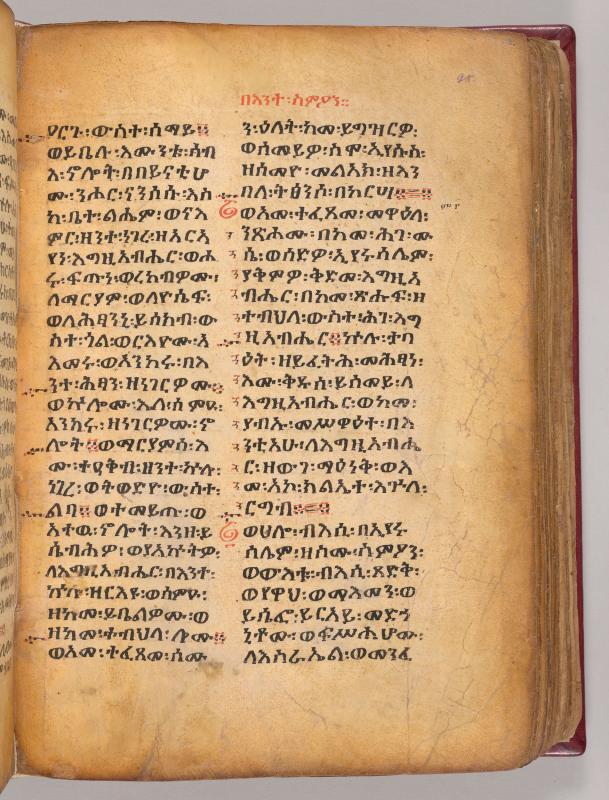 በእንተ፡ስምዖን።
ዐርጉ፡ውስተ፡ሰማይ፨
ወይቤሉ፡እሙንቱ፡ሰብ
እ፡ኖሎት፡በበይናቲሆ
ሙ፡ንሖር፡ናንሰሱ፡እስ
ከ፡ቤተ፡ልሔም፡ወናእ
ምር፡ዘንተ፡ነገረ፡ዘአርአ
የነ፡እግዚአብሔር፡ወሖ
ሩ፡ፍጡነ፡ወረከብዎሙ፡
ለማርያም፡ወለዮሴፍ፡
ወለሕፃንኒ፡ይሰክብ፡ው
ስተ፡ጎል፡ወርእዮሙ፡አ
እመሩ፡ወአንከሩ፡በእ
ንተ፡ሕፃን፡ዘነገርዎሙ፨
ወኵሎሙ፡እለ፡ሰምዑ፡
አንከሩ፡ዘነገርዎሙ፡ኖ
ሎት፨ወማርያምሰ፡እ
ሙ፡ተዐቅብ፡ዘንተ፡ኵሎ፡
ነገረ፡ወትወድዮ፡ውስተ፡
ልባ፨ወተመይጡ፡ወ
አተዉ፡ኖሎት፡እንዘ፡ይ
ሴብሕዎ፡ወየአኵትዎ፡
ለእግዚአብሔር፡በእንተ፡
ኵሉ፡ዘርእዩ፡ወሰምዑ፡
ዘከመ፡ይቤልዎሙ፡ወ
ዘከመ፡ተብህለ፡ሎሙ፨
ወአመ፡ተፈጸመ፡ሰሙ
ን፡ዕለት፡ከመ፡ይግዝርዎ፡
ወሰመይዎ፡ስሞ፡ኢየሱስ፡
ዘሰመዮ፡መልአክ፡ዘእን
በለ፡ትፅንሶ፡በከርሣ፨
ወአመ፡ተፈጸመ፡መዋዕለ፡
ንጽሖሙ፡በከመ፡ሕገ፡ሙ
ሴ፡ወሰድዎ፡ኢየሩሳሌም፡
ያቅምዎ፡ቅድመ፡እግዚአ
ብሔር፡በከመ፡ጽሑፍ፡ዘ
ተብህለ፡ውስተ፡ሕገ፡እግ
ዚአብሔር፨ኵሉ፡ተባ
ዕት፡ዘይፈትሕ፡መሕፀነ፡
እሙ፡ቅዱሰ፡ይሰመይ፡ለ
እግዚአብሔር፡ወከመ፡
ያብኡ፡መሥዋዕተ፡በእ
ንቲአሁ፡ለእግዚአብሔ
ር፡ዘውገ፡ማዕነቅ፡ወእ
መ፡አኮ፡ክልኤተ፡እጕለ፡
ርግብ፨
ወሀሎ፡ብእሲ፡በኢየሩ
ሳሌም፡ዘስሙ፡ስምዖን፡
ወውእቱ፡ብእሲ፡ጻድቅ፡
ወየዋህ፡ወማእመን፡ወ
ይሴፎ፡ይርአይ፡መድኀ
ኒቶሙ፡ወፍሥሐሆሙ፡
ለእስራኤል፡ወመንፈ